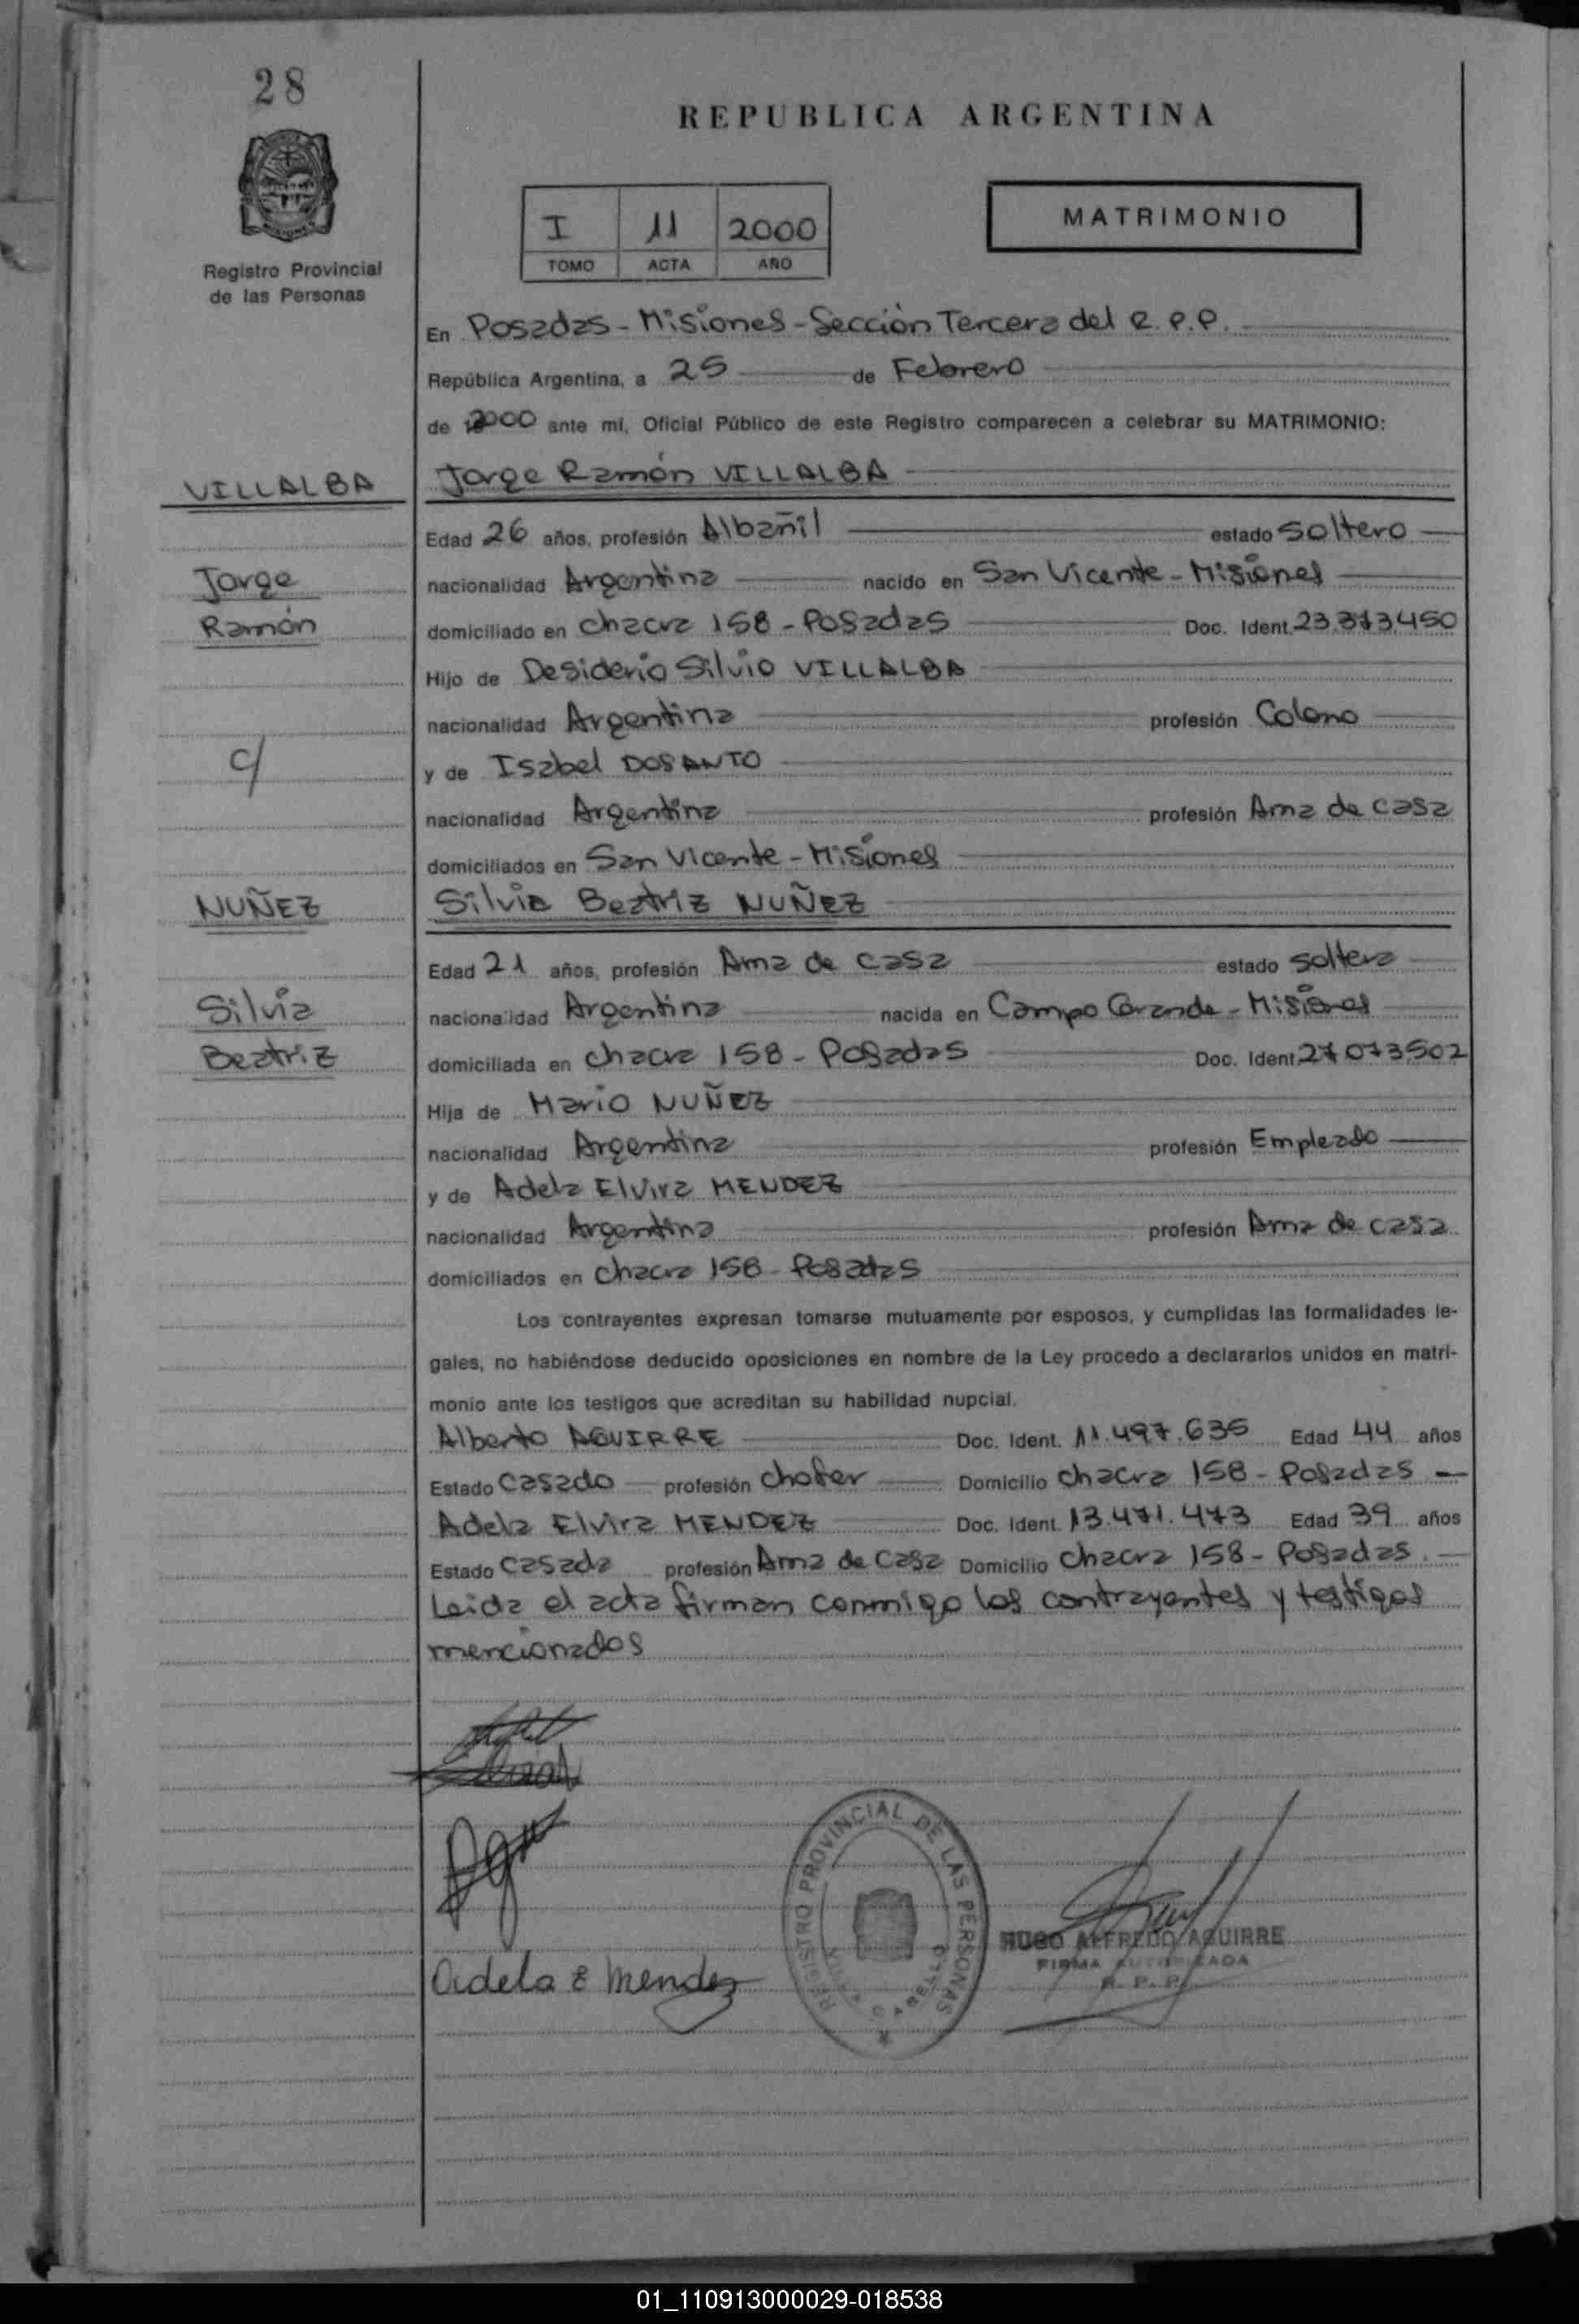 28
REPUBLICA ARGENTINA
Registro Provincial
de las Personas
I 11 2000
TOMO ACTA AÑO
MATRIMONIO
En Posadas - Misiones - Sección Tercera del R.P.P.
República Argentina, a 25 de Febrero
de 2000 ante mí, Oficial Público de este Registro comparecen a celebrar su MATRIMONIO:
VILLALBA Jorge Ramón VILLALBA
Edad 26 años, profesión Albañil estado soltero
Jorge nacionalidad Argentina nacido en San Vicente - Misiones
Ramón domiciliado en chacra 158 - Posadas Doc. Ident. 23.373.450
Hijo de Desiderio Silvio VILLALBA
nacionalidad Argentina profesión Colono
c/ y de Isabel DOSANTO
nacionalidad Argentina profesión Ama de casa
domiciliados en San Vicente - Misiones
NUÑEZ Silvia Beatriz NUÑEZ
Edad 21 años, profesión Ama de casa estado soltera
Silvia nacionalidad Argentina nacida en Campo Grande - Misiones
Beatriz domiciliada en chacra 158 - Posadas Doc. Ident 27.073.502
Hija de Mario NUÑEZ
nacionalidad Argentina profesión Empleado
y de Adela Elvira MENDEZ
nacionalidad Argentina profesión Ama de casa
domiciliados en chacra 158 - Posadas
Los contrayentes expresan tomarse mutuamente por esposos, y cumplidas las formalidades le-
gales, no habiéndose deducido oposiciones en nombre de la Ley procedo a declararlos unidos en matri-
monio ante los testigos que acreditan su habilidad nupcial.
Alberto AGUIRRE Doc. Ident. 11.497.635 Edad 44 años
Estado casado profesión chofer Domicilio chacra 158 - Posadas
Adela Elvira MENDEZ Doc. Ident. 13.471.473 Edad 39 años
Estado casada profesión Ama de casa Domicilio chacra 158 - Posadas.
Leida el acta firman conmigo los contrayentes y testigos
mencionados
REGISTRO PROVINCIAL DE LAS PERSONAS
HUGO ALFREDO AGUIRRE
FIRMA AUTORIZADA
R. P. P.
Adela E Mendez
01_110913000029-018538